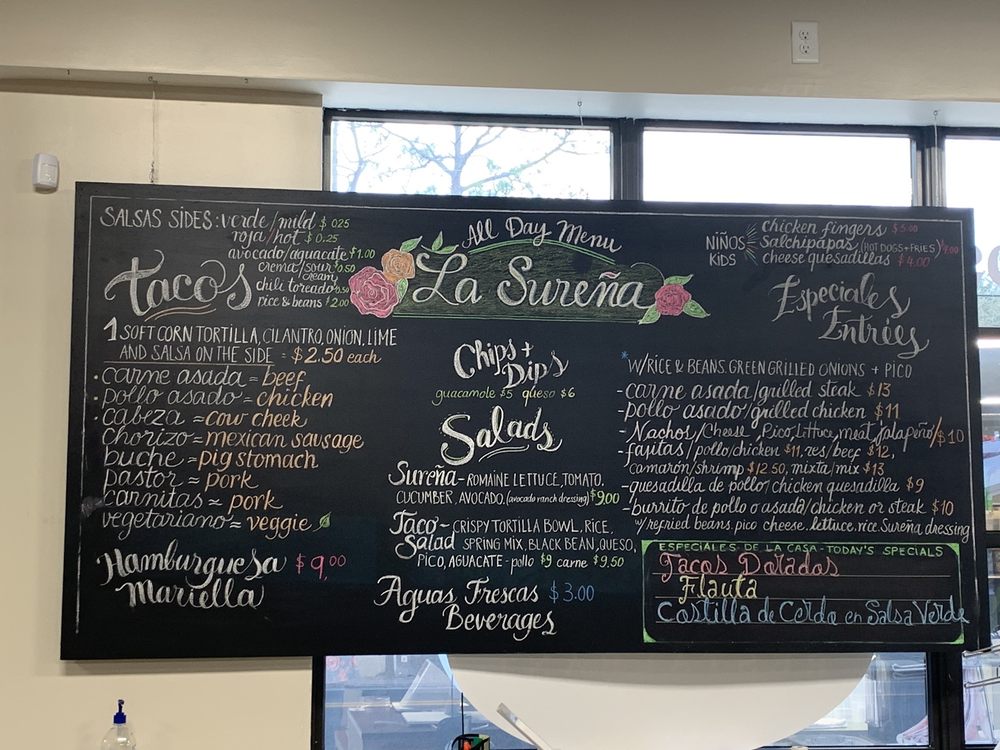 SALSAS SIDES: verde/mild $ 025
roja/hot $ 0.25
avocado/aguacate $1.00
crema/sour cream $0.50
chile toreado 0.50
rice & beans $2.00
Tacos
1 SOFT CORN TORTILLA, CILANTRO, ONION, LIME
AND SALSA ON THE SIDE = $2.50 each
• carne asada = beef
• pollo asado = chicken
cabeza = cow cheek
chorizo = mexican sausage
buche = pig stomach
pastor = pork
carnitas = pork
vegetariano = veggie
Hamburguesa $9.00
Mariella
All Day Menu
La Sureña
Chips + Dips
guacamole $5 queso $6
Salads
Sureña - ROMAINE LETTUCE, TOMATO,
CUCUMBER, AVOCADO, (avocado ranch dressing) $9.00
Taco - CRISPY TORTILLA BOWL, RICE,
Salad SPRING MIX, BLACK BEAN, QUESO,
PICO, AGUACATE - pollo $9 carne $9.50
Aguas Frescas $3.00
Beverages
NIÑOS KIDS
chicken fingers $5.00
Salchipapas, (HOT DOGS + FRIES) $4.00
cheese quesadillas $4.00
Especiales
Entries
*W/RICE & BEANS. GREEN GRILLED ONIONS + PICO
-carne asada/grilled steak $13
-pollo asado/grilled chicken $11
-Nachos/Cheese, Pico, Littuce, meat, jalapeño/$10
-fajitas/pollo/chicken $11, res/beef $12,
camarón/shrimp $12.50, mixta/mix $13
-quesadilla de pollo/chicken quesadilla $9
-burrito de pollo o asada/chicken or steak $10
w/refried beans, pico cheese, lettuce, rice, Sureña, dressing
ESPECIALES DE LA CASA - TODAY'S SPECIALS
Tacos Doradas
Flauta
Costilla de Cerdo en Salsa Verde